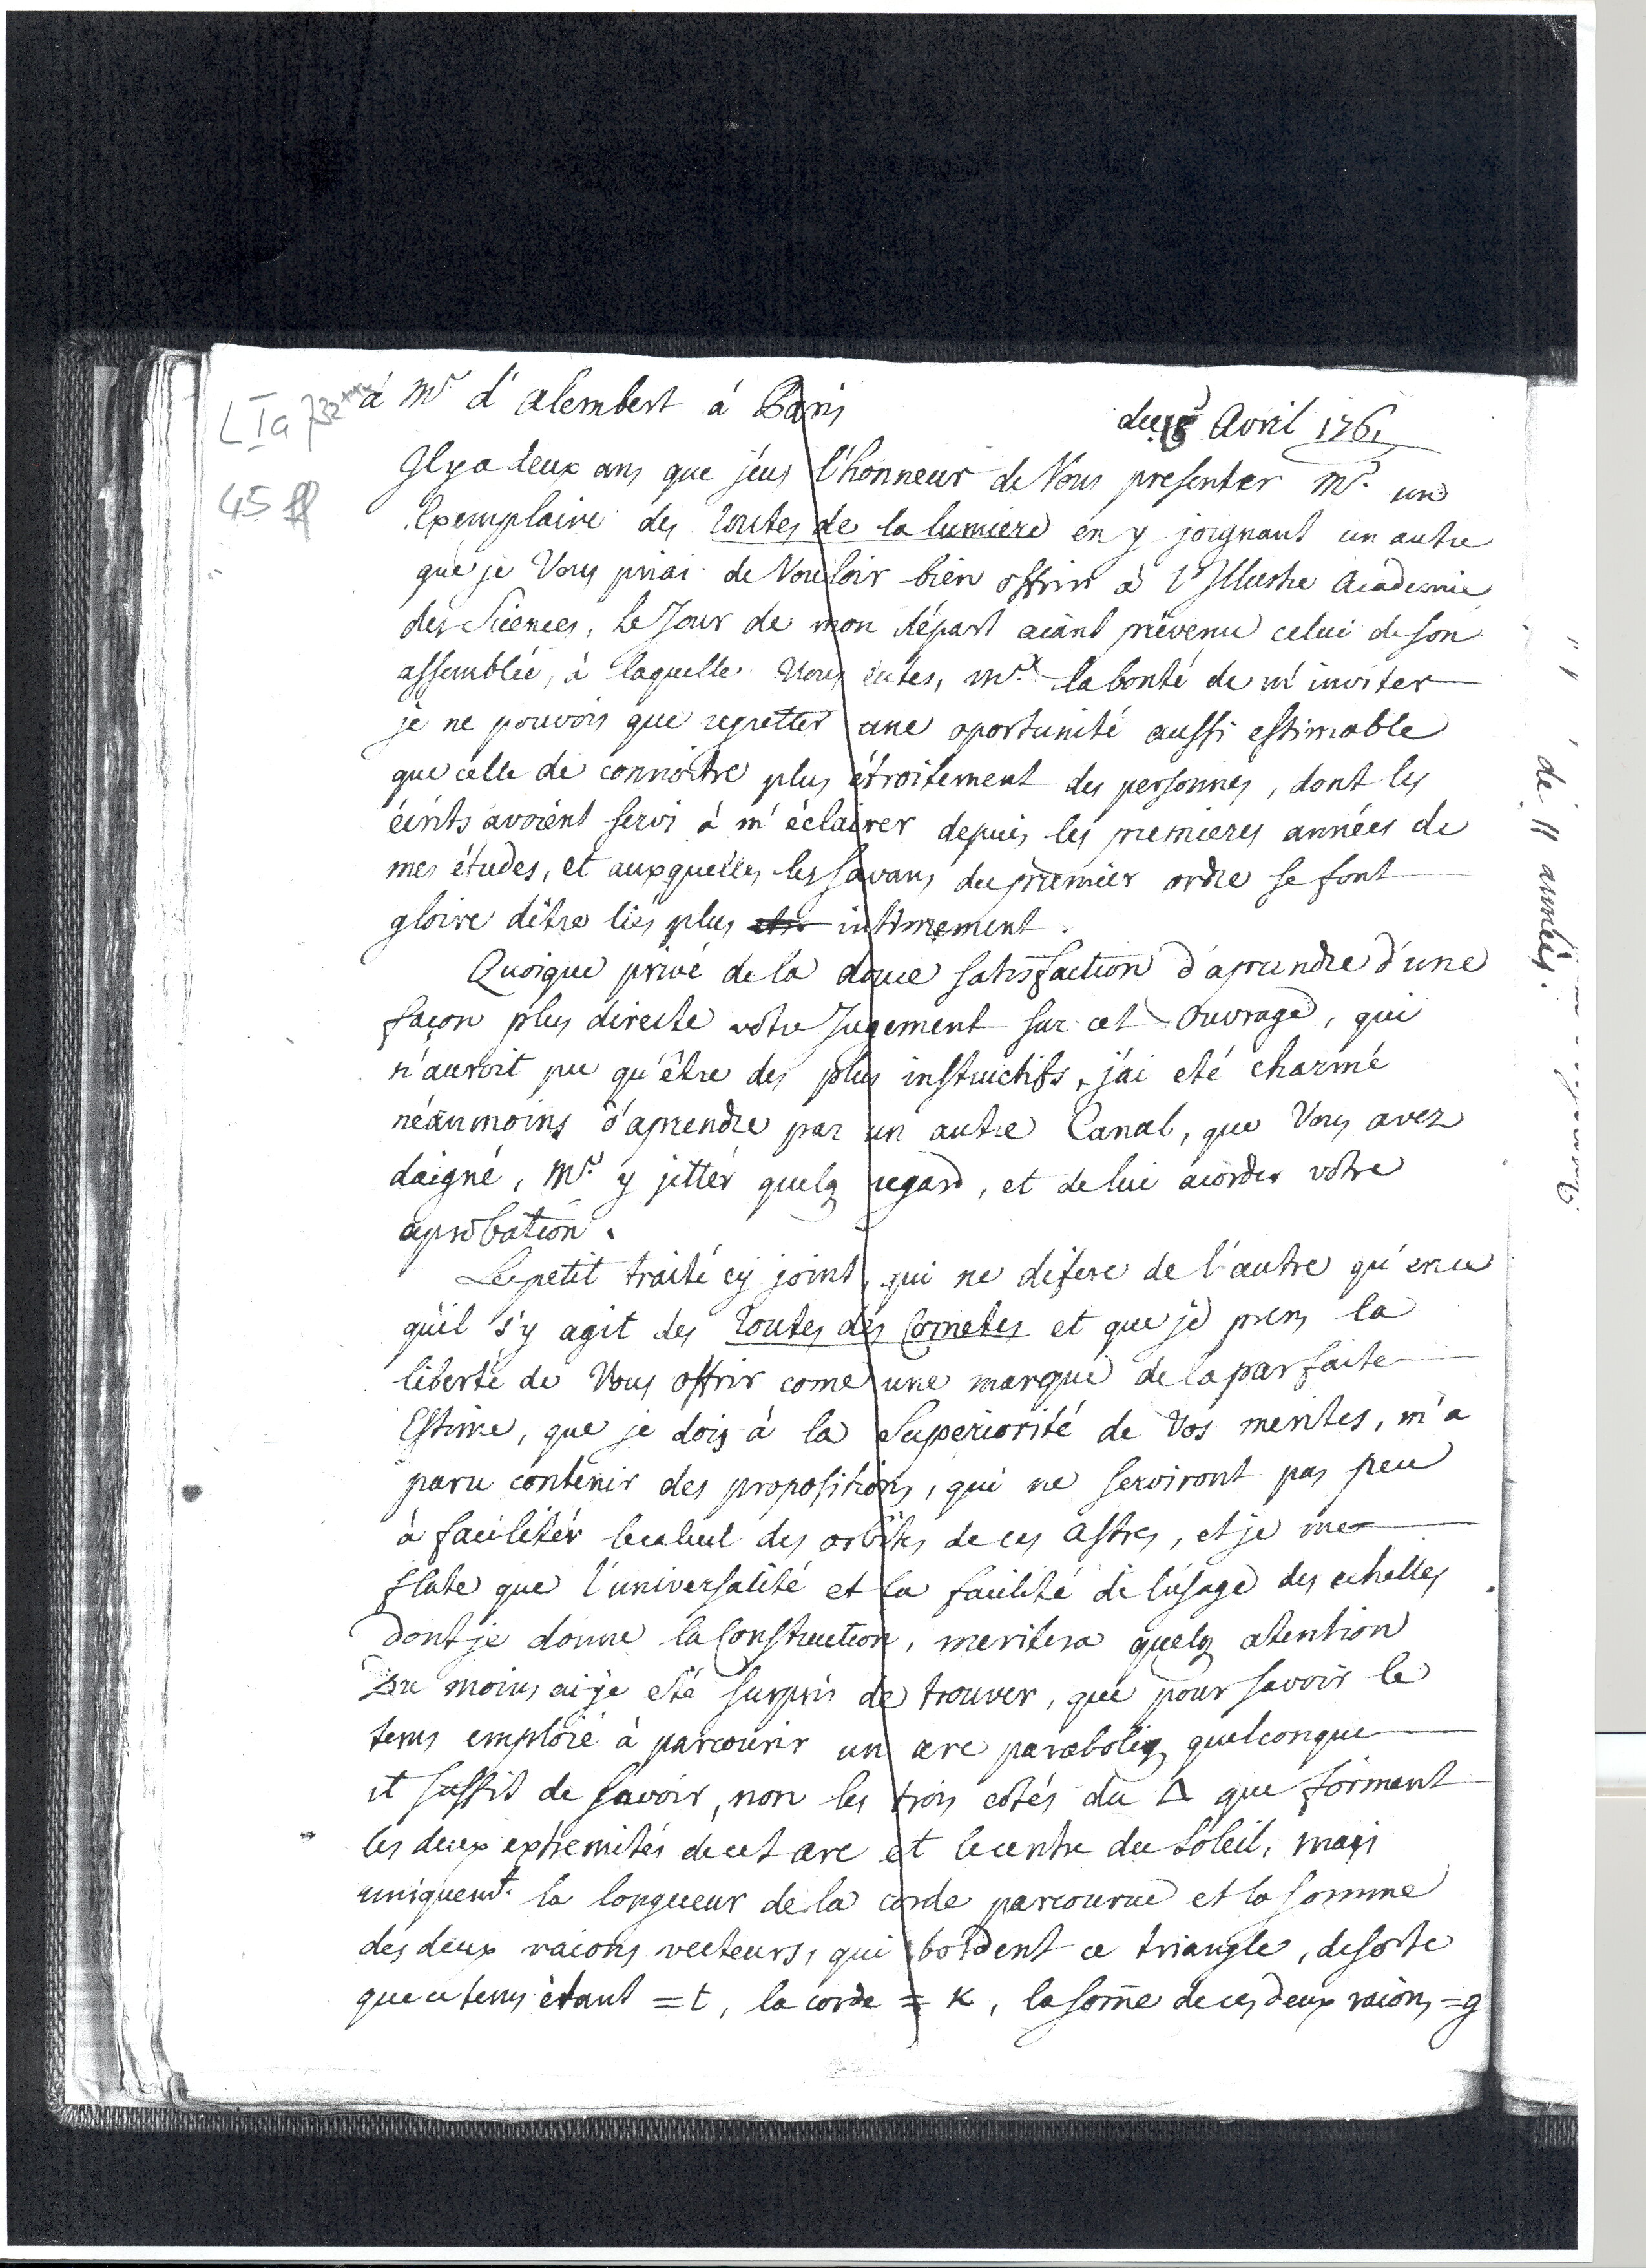 LIa 732
45 ff
à Mr d'alembert à Paris
du 18 Avril 1761
Il y a deux ans que j'eus l'honneur de Vous presenter Mr. un
Exemplaire des routes de la lumiere en y joignant un autre
que je Vous priai de Vouloir bien offrir à l'Illustre Academie
des Siences, le Jour de mon départ aiant prévenu celui de son
assemblée, à laquelle Vous eutes, Mr. la bonté de m'inviter
je ne pouvois que regretter une oportunité aussi estimable
que celle de connoitre plus étroitement des personnes, dont les
écrits avoient servi à m'éclairer depuis les premieres années de
mes études, et auxquelles les savans du premier ordre se font
gloire d'être liés plus intimement.
Quoique privé de la douce satisfaction d'aprendre d'une
façon plus directe votre Jugement sur cet Ouvrage, qui
n'auroit pu qu'être des plus instructifs, j'ai eté charmé
néanmoins d'aprendre par un autre Canal, que Vous avez
daigné, Mr. y jetter quelq regard, et de lui acorder votre
aprobation.
Le petit traité cy joint, qui ne difere de l'autre qu'en ce
qu'il s'y agit des routes des Cometes et que je prens la
liberté de Vous offrir come une marque de la parfaite
Estime, que je dois à la Superiorité de Vos merites, m'a
paru contenir des propositions, qui ne serviront pas peu
à faciliter le calcul des orbites de ces Astres, et je me
flate que l'universalité et la facilité de l'usage des echelles
dont je donne la Construction, meritera quelq atention
Du moins ai je eté surpris de trouver, que pour savoir le
tems emploié à parcourir un arc paraboliq quelconque
il suffit de savoir, non les trois cotés du Δ que forment
les deux extremités de cet arc et le centre du Soleil, mais
uniquemt. la longueur de la corde parcourue et la somme
des deux raions vecteurs, qui bordent ce triangle, de sorte
que ce tems étant = t, la corde = k, la some de ces deux raions = g
de 11 années.